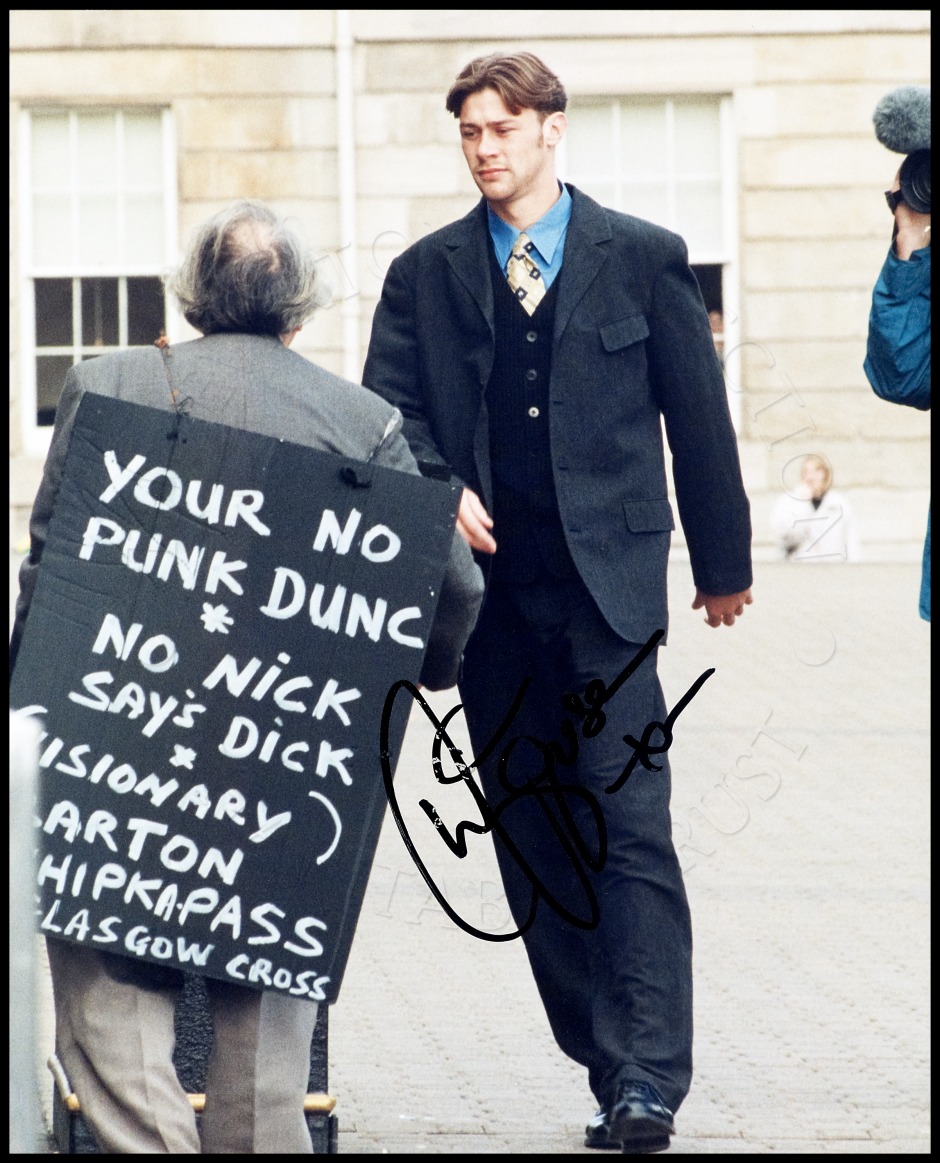 YOUR NO
PUNK DUNC
*
NO NICK
SAY'S DICK
*
VISIONARY )
BARTON
SHIPKA-PASS
GLASGOW CROSS